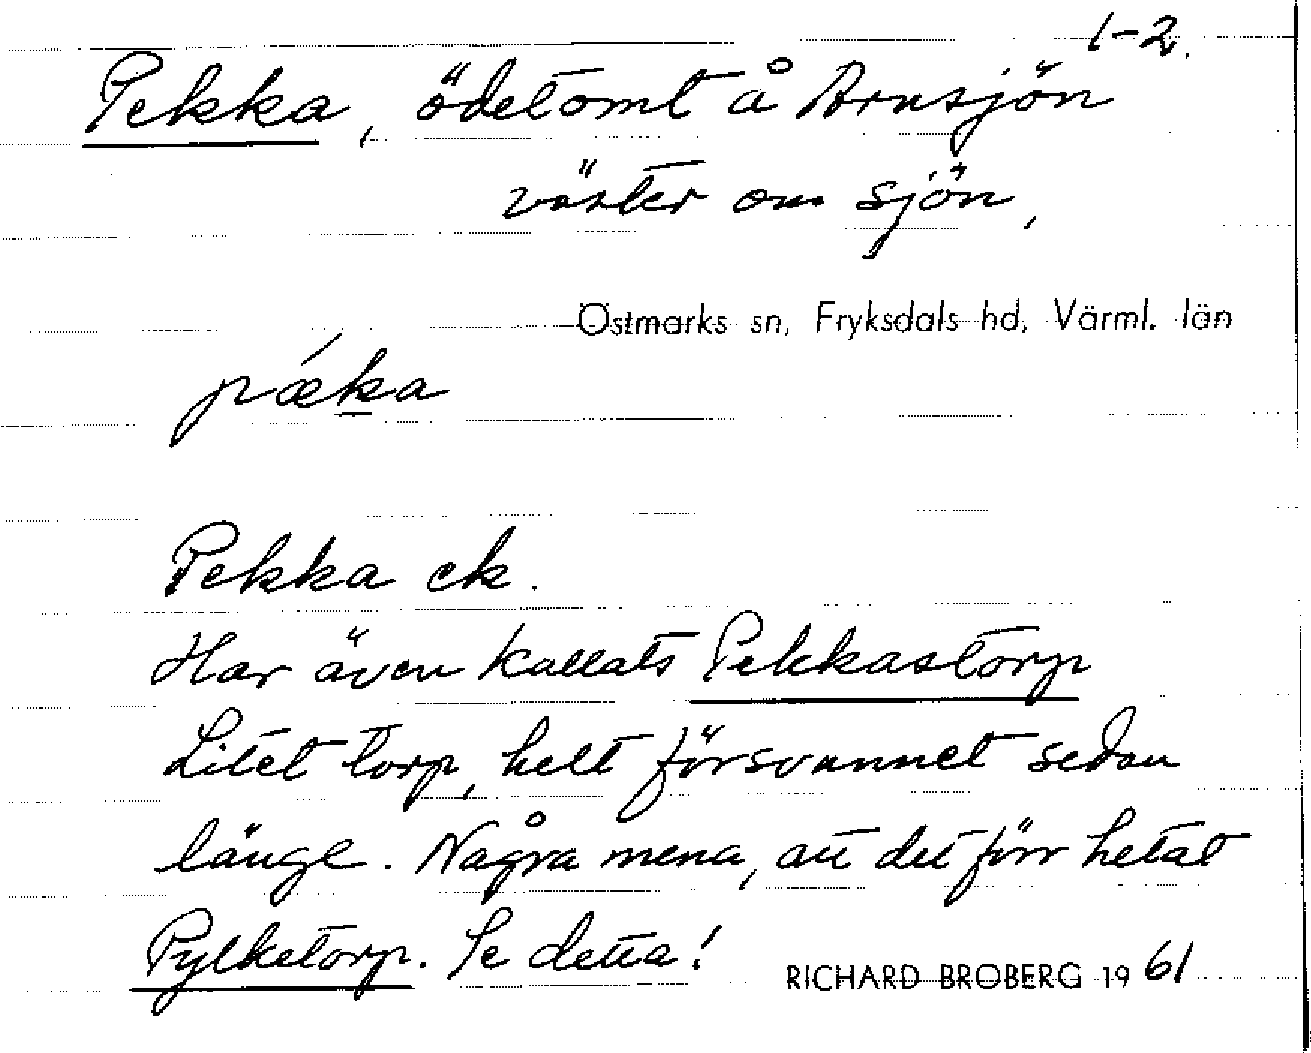 1-2.
Pekka, ödetomt å Arnsjön
väster om sjön,
Östmarks sn, Fryksdals hd, Värml. län
pǽka
Pekka ek.
Har även kallats Pekkastorp
Litet torp, helt försvunnet sedan
länge. Några mena, att det förr hetat
Pylketorp. Se detta!
RICHARD BROBERG 1961